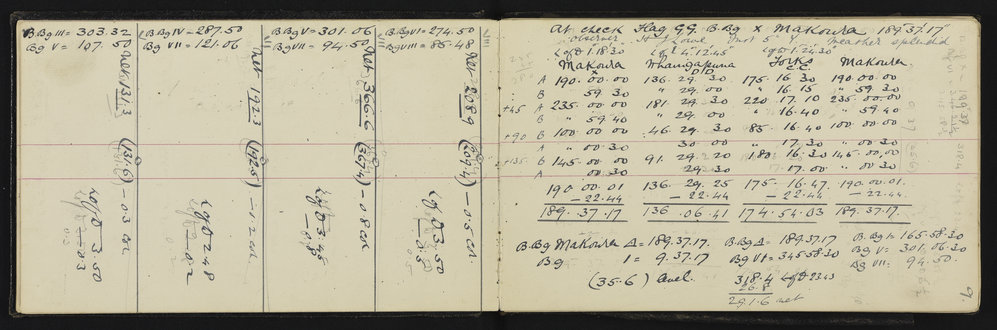 B.Bg III = 303.32
Bg V = 107.50
B.Bg IV = 287.50
Bg VII = 121.06
B.Bg V = 301.06
Bg VII = 94.50
B.Bg VI = 274.50
Bg VIII = 85.48
Net 131.3 (131.6) - 0.3
Net 192.3 - 0.2
Net 366.6 (367.4) - 0.8
Net 208.9 (209.4) - 0.5
3.50
- 0.3
2.48
- 0.2
- 0.8
3.50
- 0.5
At check Flag GG. B.Bg x Makoura 189°.37'.17"
Observer
Weather splendid
Makoura Whangapuna Forks Makoura
A 190.00.00 136.29.30 175.16.30 190.00.00
B " 59.30 " 29.00 " 16.15 " 59.30
+45 A 235.00.00 181.29.30 220.17.10 235.00.00
B " 59.40 " 29.00 " 16.40 " 59.40
+90 B 100.00.00 46.29.30 85.16.40 100.00.00
A " 00.30 30.00 " 17.30 " 00.30
+135 B 145.00.00 91.29.20 180.16.30 145.00.00
A 00.30 29.30 17.00 " 00.30
190.00.01 136.29.25 175.16.47 190.00.01
- 22.44 - 22.44 - 22.44 - 22.44
189.37.17 136.06.41 174.54.03 189.37.17
B.Bg Makoura Δ = 189.37.17
Bg I = 9.37.17
B.Bg Δ = 189.37.17
Bg VI = 345.58.30
B.Bg I = 165.58.30
Bg V = 301.06.30
Bg VII = 94.50.
(35.6) level.
318.4
26.8
291.6 net
9.